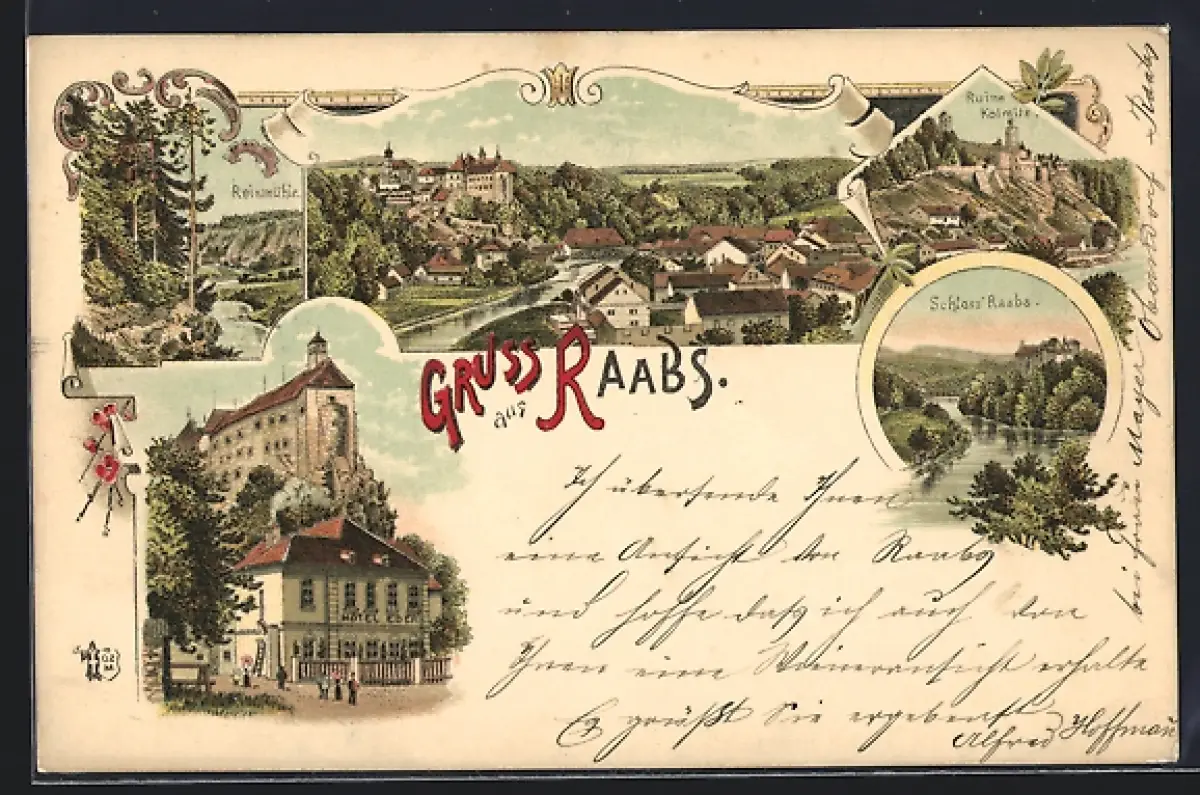 Reinmühle.
Ruine
Kolmitz.
Schloss Raabs.
GRUSS
aus
RAABS.
HOTEL EDER
Ich übersende Ihnen
eine Ansicht von Raabs
und hoffe daß ich auch von
Ihnen eine Wieneransicht erhalte
Es grüßt Sie ergebenst
Alfred Hoffman
bei Mayer Oberndorf Raabs